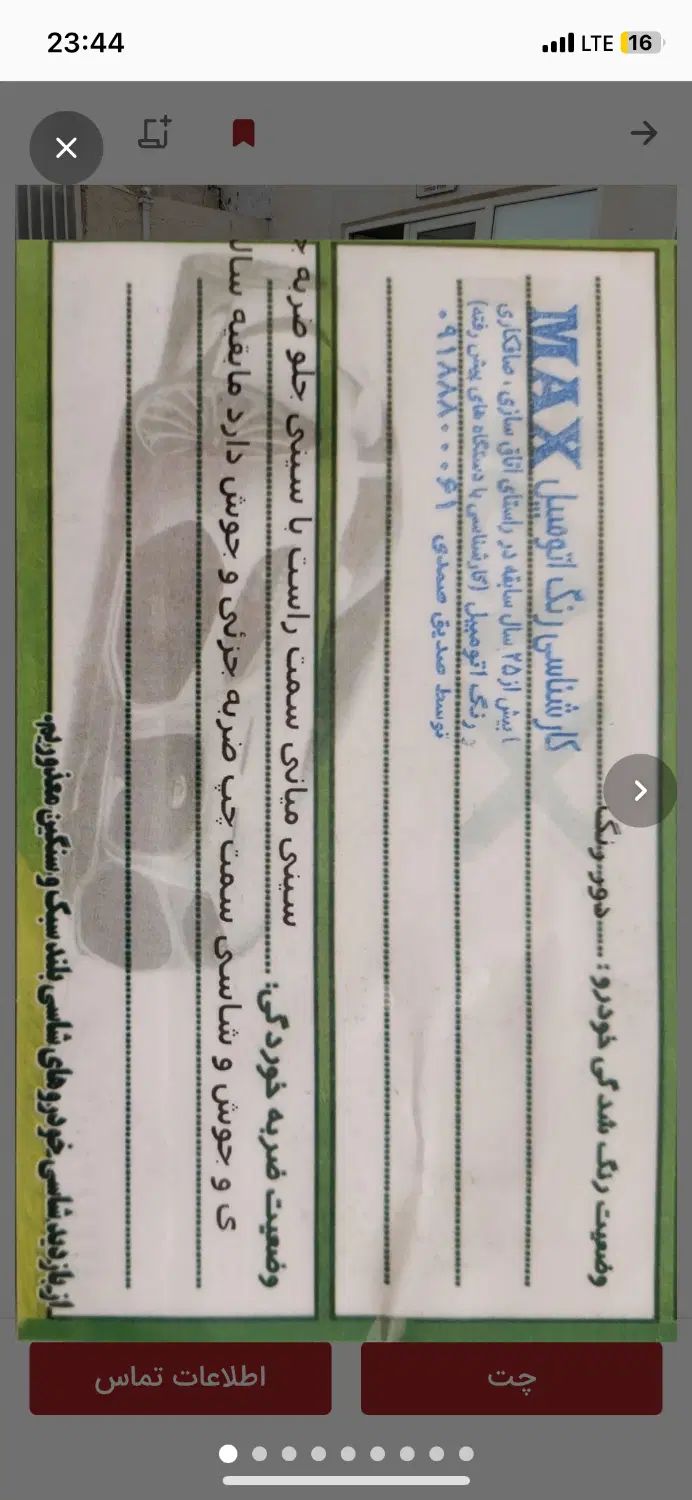 23:44
LTE 16
وضعیت رنگ شدگی خودرو : دور رنگ
MAX کارشناسی رنگ اتومبیل
بیش از ۲۵ سال سابقه در راستای اتاق سازی، صافکاری
رنگ اتومبیل (کارشناسی با دستگاه های پیش رفته)
توسط صدیق صمدی ۰۹۱۸۸۸۰۰۰۶۱
وضعیت ضربه خوردگی: سینی میانی سمت راست با سینی جلو ضربه
ی و جوش و شاسی سمت چپ ضربه جزئی و جوش دارد مابقیه سال
از بازدید شاسی خودروهای شاسی بلند سبک و سنگین معذوریم.
چت
اطلاعات تماس